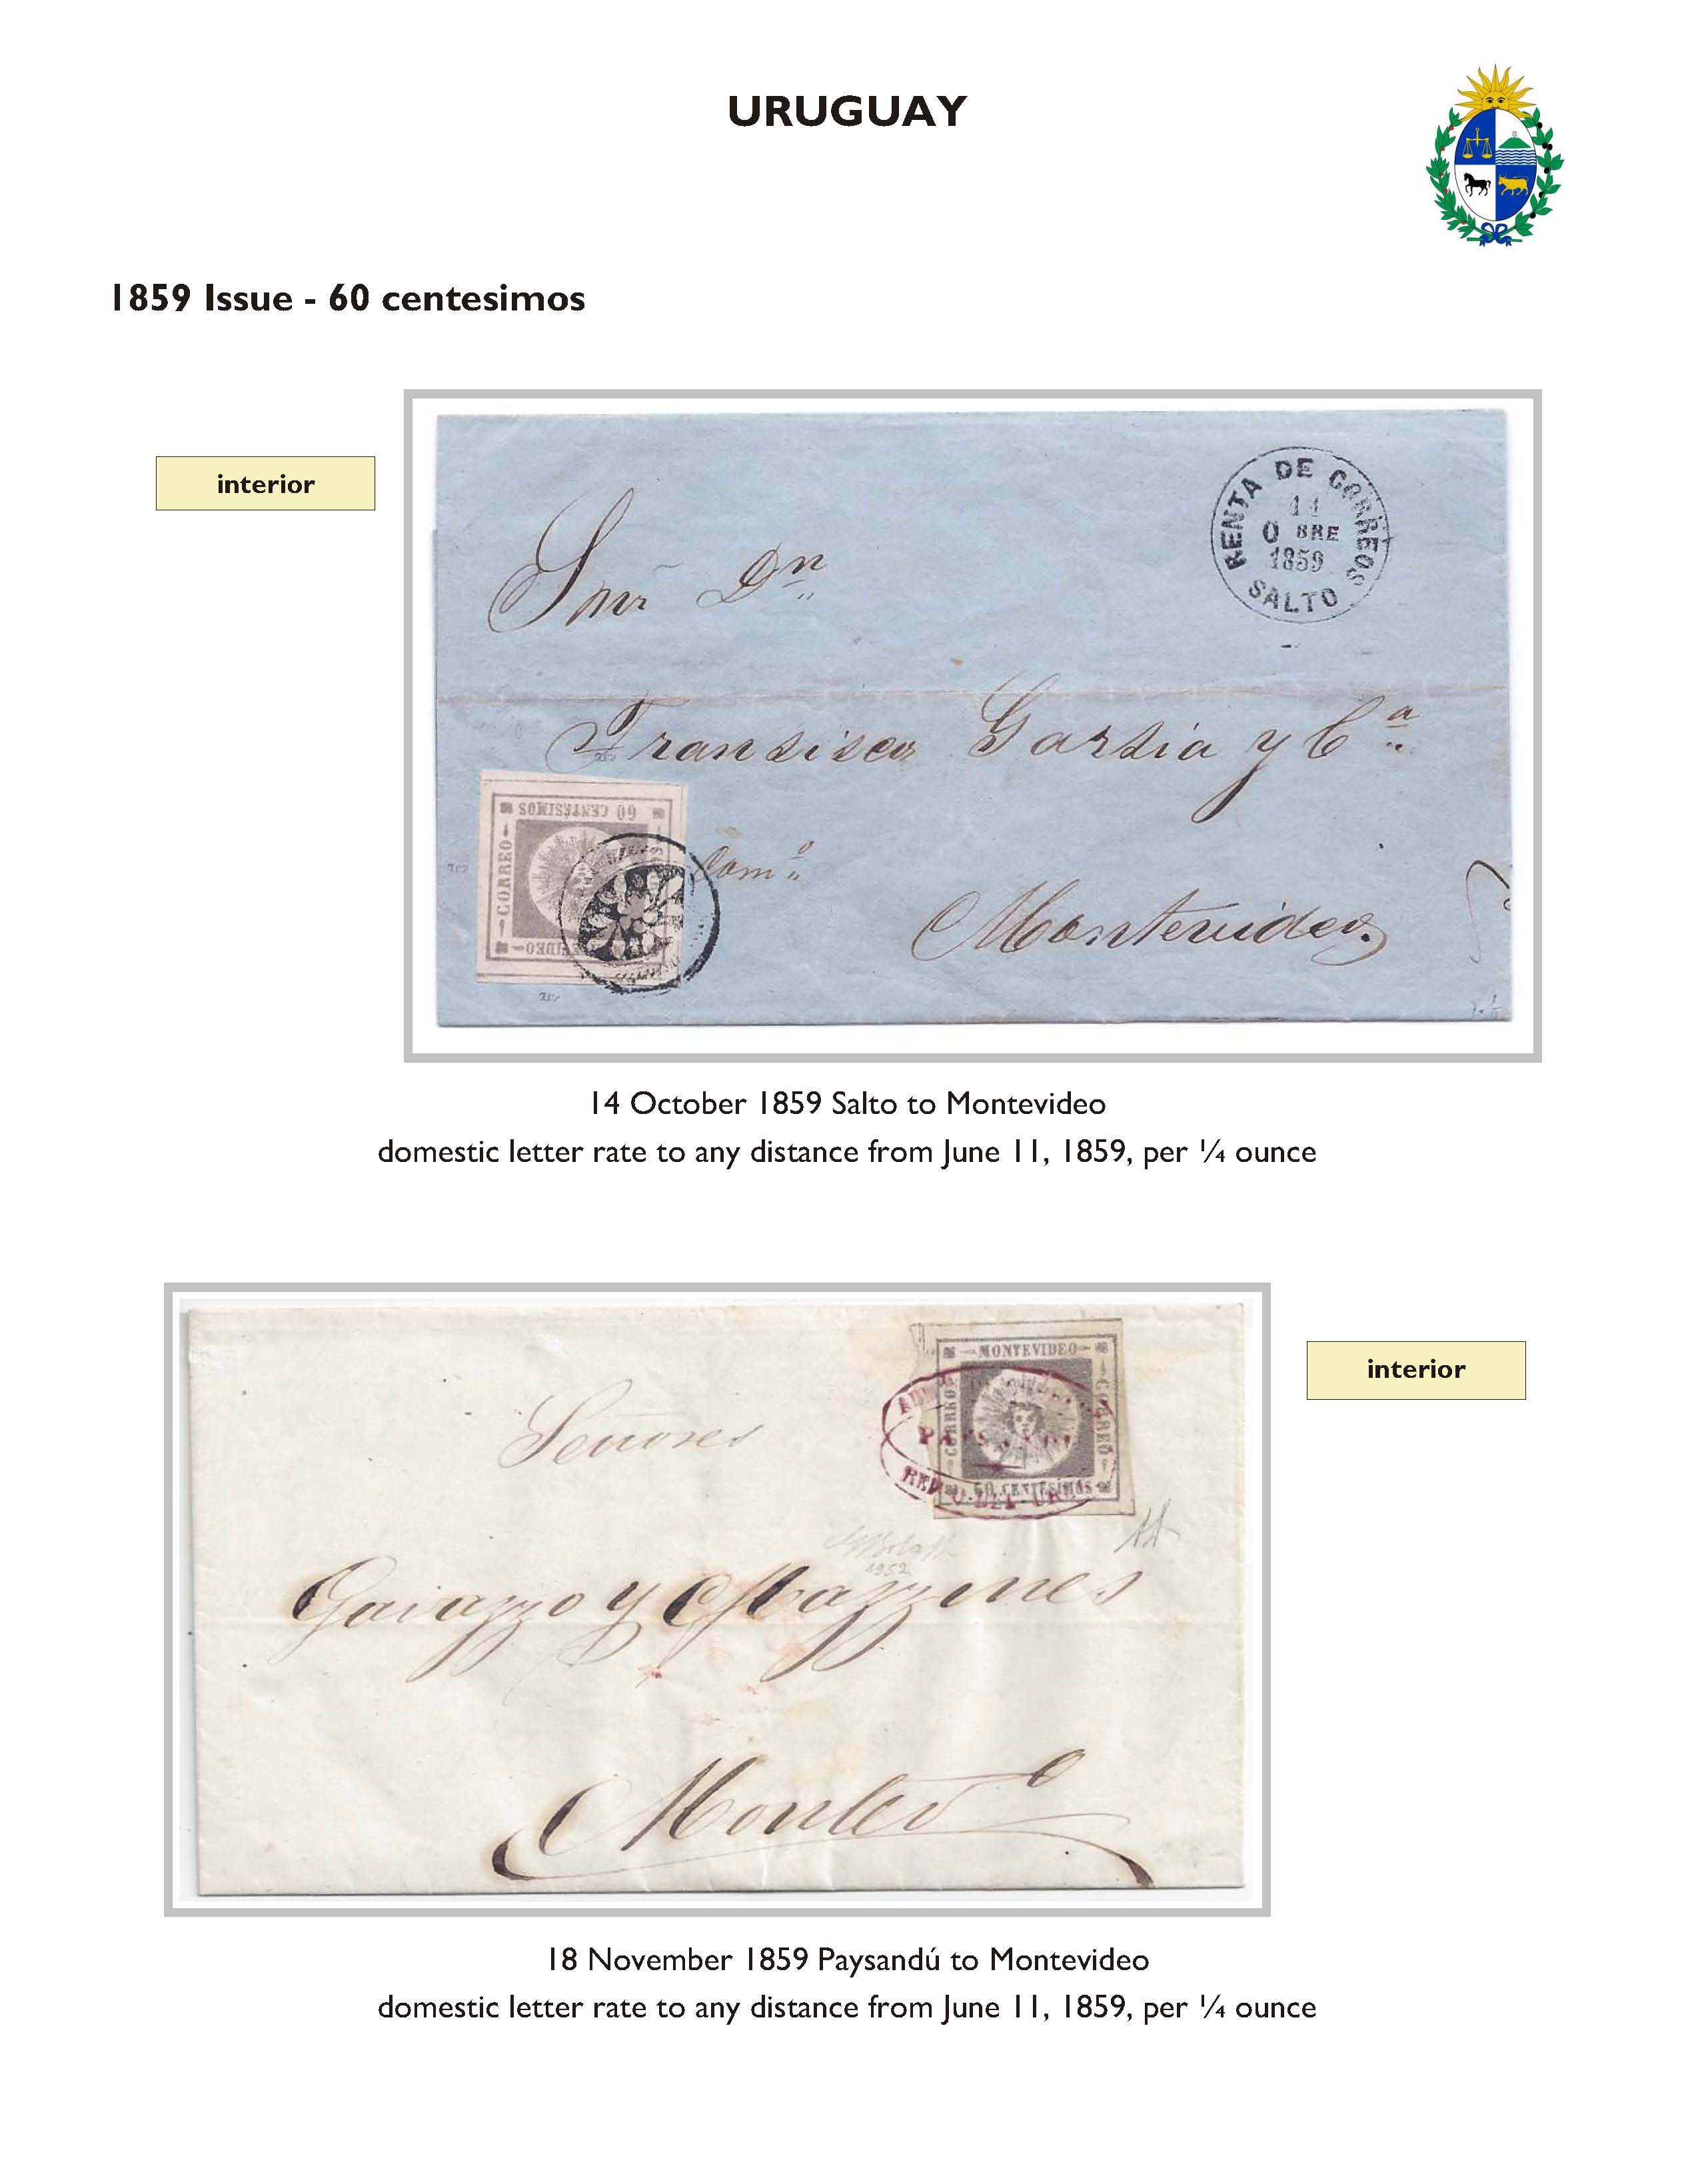 URUGUAY
1859 Issue - 60 centesimos
interior
RENTA DE CORREOS
14
O BRE
1859
SALTO
Sñr Dn
Fransisco Garsia y Ca
60 CENTÉSIMOS
CORREO
Comº
Montevideo
14 October 1859 Salto to Montevideo
domestic letter rate to any distance from June 11, 1859, per ¼ ounce
interior
MONTEVIDEO
CORREO
CORREO
60 CENTÉSIMOS
Señores
1952
Montevº
18 November 1859 Paysandú to Montevideo
domestic letter rate to any distance from June 11, 1859, per ¼ ounce